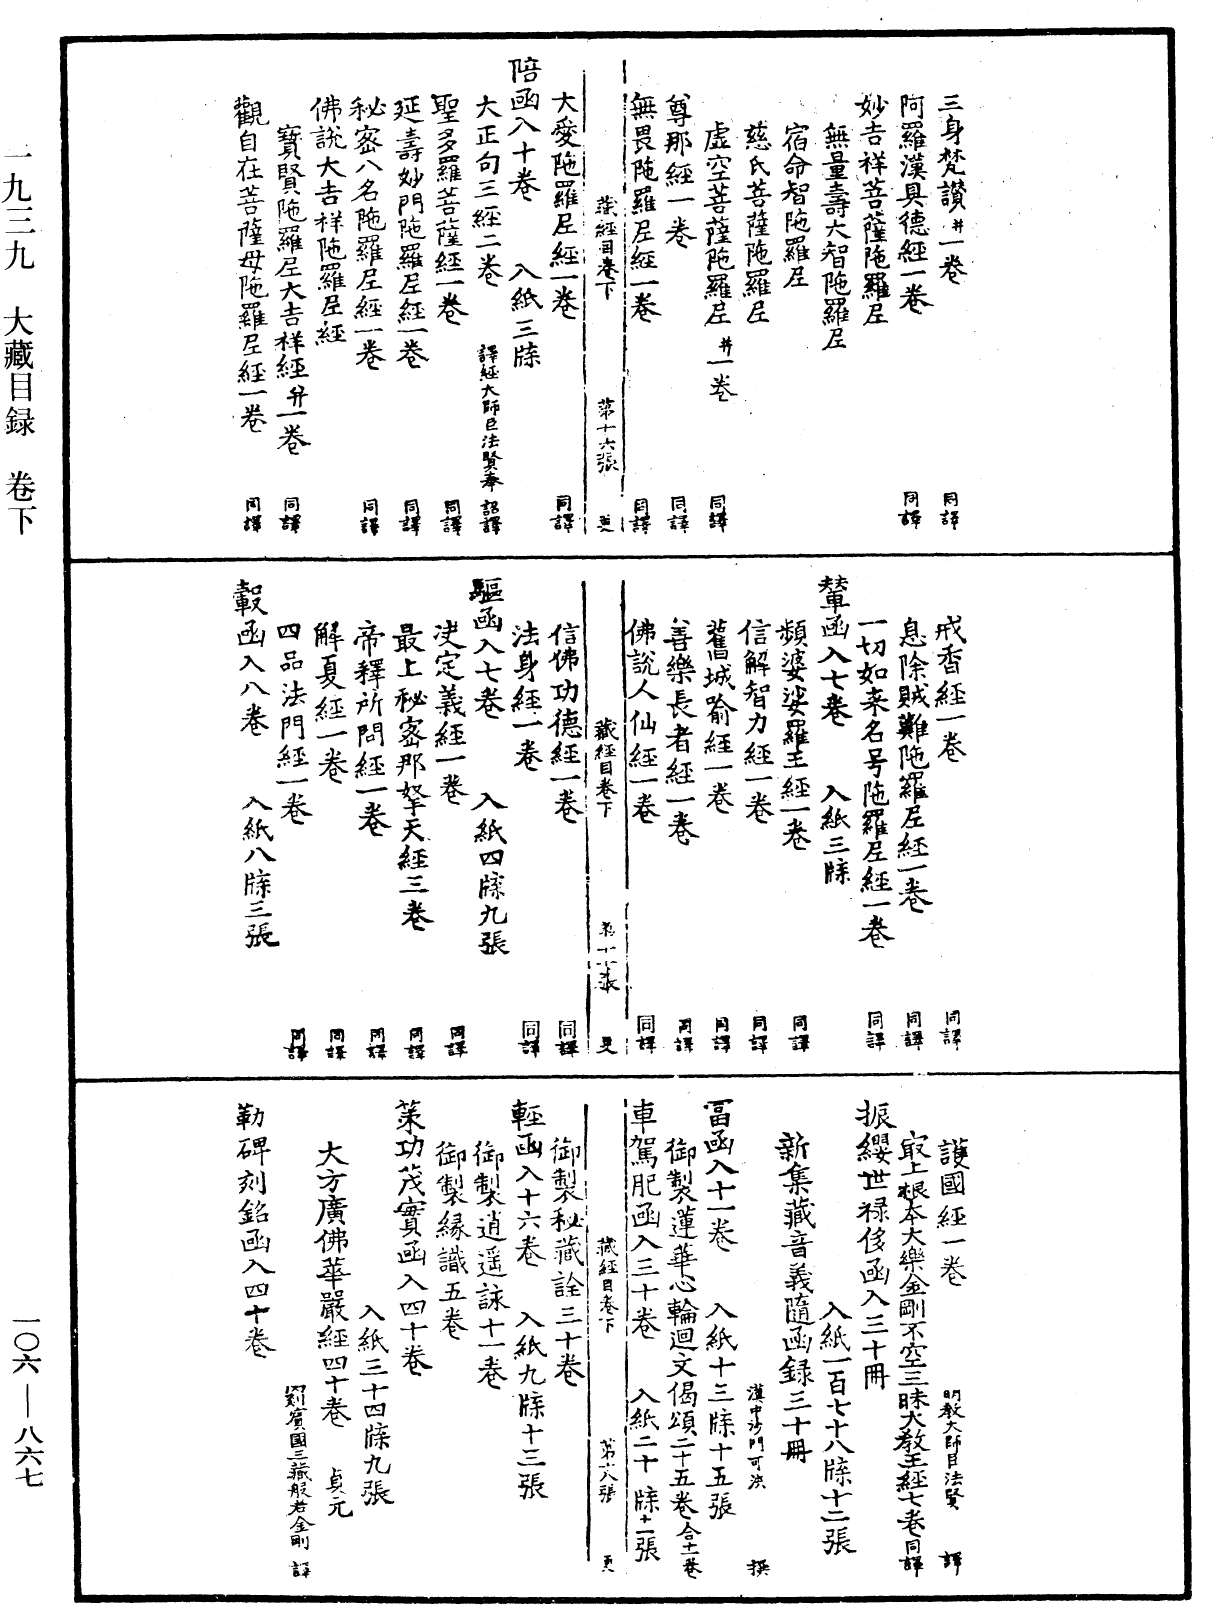 一九三九　大藏目録　卷下
三身梵讃并一卷　同譯
阿羅漢具德經一卷　同譯
妙吉祥菩薩陁羅尼
無量壽大智陁羅尼
宿命智陁羅尼
慈氏菩薩陁羅尼
虛空菩薩陁羅尼并一卷　同譯
尊那經一卷　同譯
無畏陁羅尼經一卷　同譯
藏經目卷下　第十六張　更
大愛陁羅尼經一卷　同譯
陪函入十卷　入紙三牒
大正句三經二卷　譯經大師臣法賢奉　詔譯
聖多羅菩薩經一卷　同譯
延壽妙門陁羅尼經一卷　同譯
秘密八名陁羅尼經一卷　同譯
佛說大吉祥陁羅尼經
寶賢陁羅尼大吉祥經并一卷　同譯
觀自在菩薩母陁羅尼經一卷　同譯
戒香經一卷　同譯
息除賊難陁羅尼經一卷　同譯
一切如来名号陁羅尼經一卷　同譯
輦函入七卷　入紙三牒
頻婆娑羅王經一卷　同譯
信解智力經一卷　同譯
舊城喻經一卷　同譯
善樂長者經一卷　同譯
佛說人仙經一卷　同譯
藏經目卷下　張　更
信佛功德經一卷　同譯
法身經一卷　同譯
驅函入七卷　入紙四牒九張
决定義經一卷　同譯
最上秘密那拏天經三卷　同譯
帝釋所問經一卷　同譯
解夏經一卷　同譯
四品法門經一卷　同譯
轂函入八卷　入紙八牒三張
護國經一卷　明教大師臣法賢　譯
冣上根本大樂金剛不空三昧大教王經七卷　同譯
振纓世禄侈函入三十冊
入紙一百七十八牒十二張
新集藏音義隨函録三十冊
漢中沙門可洪　撰
富函入十一卷　入紙十三牒十五張
御製蓮華心輪迴文偈頌二十五卷合十一卷
車駕肥函入三十卷　入紙二十牒十一張
藏經目卷下　第六張　更
御製秘藏詮三十卷
輕函入十六卷　入紙九牒十三張
御製逍遥詠十一卷
御製緣識五卷
策功茂實函入四十卷
入紙三十四牒九張
大方廣佛華嚴經四十卷　貞元
罽賓國三藏般若金剛　譯
勒碑刻銘函入四十卷
一〇六—八六七